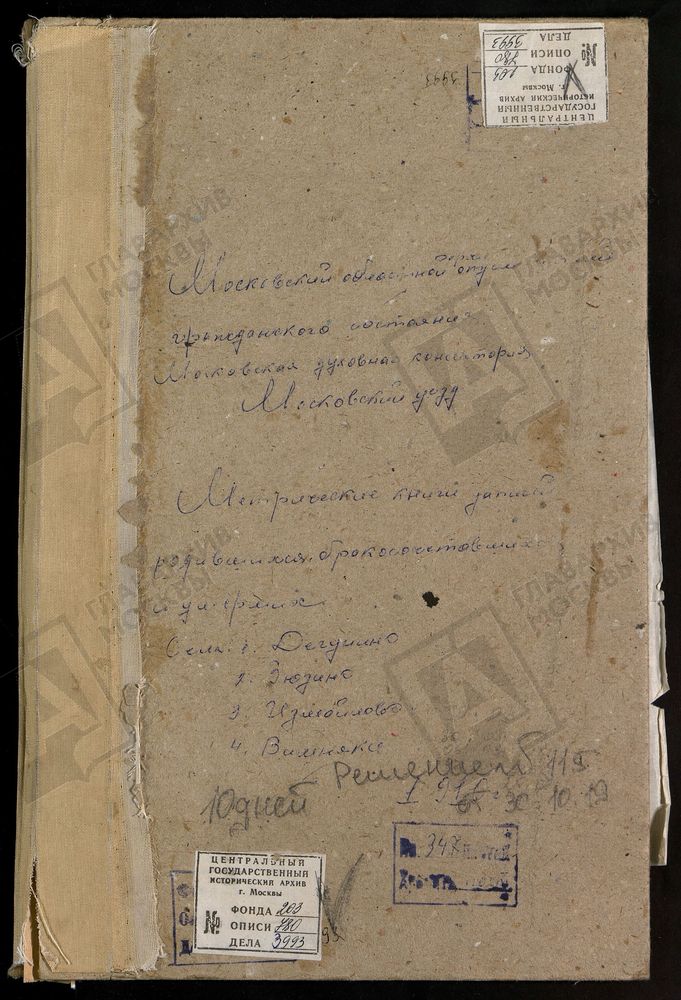 ЦЕНТРАЛЬНЫЙ
ГОСУДАРСТВЕННЫЙ
ИСТОРИЧЕСКИЙ АРХИВ
г. Москвы
№
ФОНДА 203
ОПИСИ 780
ДЕЛА 3993
3993
Московский областной
гражданского состояния
Московская духовная консистория
Московский уезд
Метрические книги записей
родившихся, бракосочетавшихся
и умерших
Села: 1. Дегунино
2. Зюзино
3. Измайлово
4. Вишняки
Решение
10 дней
от 30.10.19
347
ЦЕНТРАЛЬНЫЙ
ГОСУДАРСТВЕННЫЙ
ИСТОРИЧЕСКИЙ АРХИВ
г. Москвы
№
ФОНДА 203
ОПИСИ 780
ДЕЛА 3993
ГЛАВАРХИВ
МОСКВЫ
ГЛАВАРХИВ
МОСКВЫ
ГЛАВАРХИВ
МОСКВЫ
ГЛАВАРХИВ
МОСКВЫ